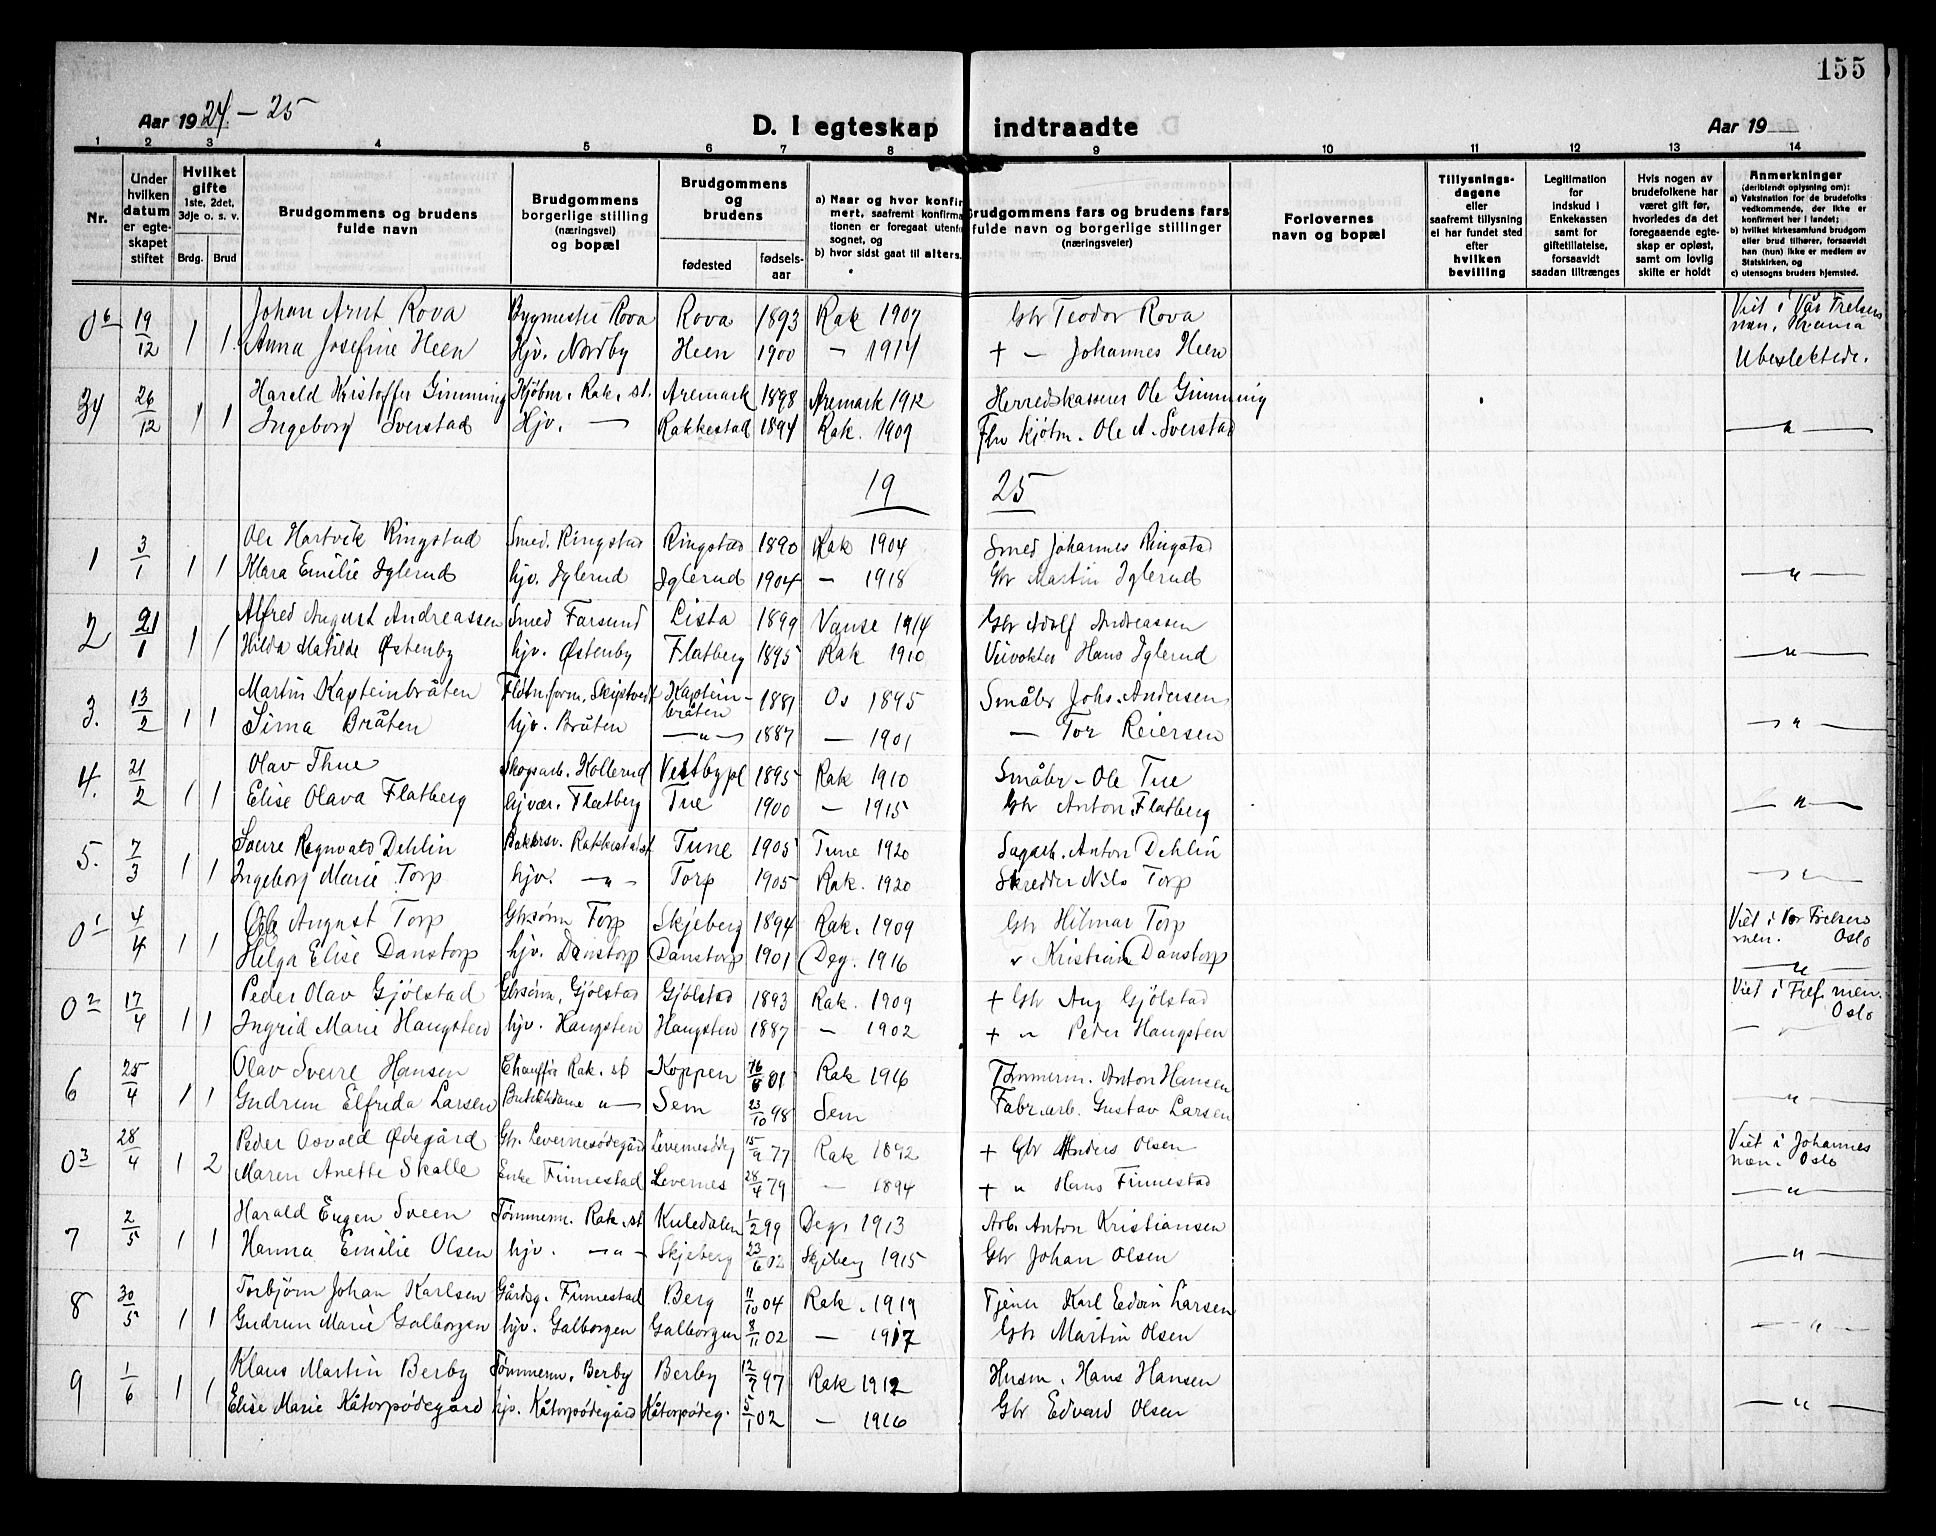 155
Aar 1924 – 25
D. I egteskap indtraadte
Aar 19
1 2 3 4 5 6 7 8 9 10 11 12 13 14
Nr.
Under hvilken datum er egteskapet stiftet
Hvilket gifte 1ste, 2det, 3dje o. s. v.
Brdg. Brud
Brudgommens og brudens fulde navn
Brudgommens borgerlige stilling (næringsvei) og bopæl
Brudgommens og brudens
fødested
fødselsaar
a) Naar og hvor konfirmert, saafremt konfirmationen er foregaat utenfor sognet, og
b) hvor sidst gaat til alters.
Brudgommens fars og brudens fars fulde navn og borgerlige stillinger (næringsveier)
Forlovernes navn og bopæl
Tillysningsdagene eller saafremt tillysning ei har fundet sted efter hvilken bevilling
Legitimation for indskud i Enkekassen samt for giftetillatelse, forsaavidt saadan tiltrænges
Hvis nogen av brudefolkene har været gift før, hvorledes da det foregaaende egteskap er opløst, samt om lovlig skifte er holdt
Anmerkninger (deriblandt oplysning om):
a) Vaksination for de brudefolks vedkommende, der ikke er konfirmert her i landet;
b) hvilket kirkesamfund brudgom eller brud tilhører, forsaavidt han (hun) ikke er medlem av Statskirken, og
c) utensogns bruders hjemsted.
0 6 19/12 1 Johan Arnt Rova Bygmester Rova Rova 1893 Rak 1907 Gbr Teodor Rova Viet i Vår Frelsers men. Kr.ania
1 Anna Josefine Heen Hjv. Nordby Heen 1900 – 1914 + – Johannes Heen Ubeslektede.
34 26/12 1 Harald Kristoffer Gimming Kjøbm. Rak. st. Aremark 1898 Aremark 1912 Herredskasserer Ole Gimming
1 Ingeborg Sverstad Hjv. – Rakkestad 1894 Rak. 1909 Fhv kjøbm. Ole A. Sverstad – " –
19 25
1 3/1 1 Ole Hartvik Ringstad Smed. Ringstad Ringstad 1890 Rak 1904 Smed Johannes Ringstad
1 Klara Emilie Iglerud hjv. Iglerud Iglerud 1904 – 1918 Gbr Martin Iglerud – " –
2 21/1 1 Alfred August Andreassen Smed Farsund Lista 1899 Vanse 1914 Gbr Adolf Andreassen
1 Hilda Matilde Østenby hjv. Østenby Flatberg 1895 Rak 1910 Veivokter Hans Iglerud – " –
3. 13/2 1 Martin Kapteinbråten Fløtn.form. Skiptvedt Kapteinbråten 1881 Os 1895 Småbr Johs. Andersen
1 Sima Bråten hjv. Bråten – " – 1887 – 1901 – Tor Reiersen – " –
4. 21/2 1 Olav Thue Skogsarb. Kollerud Vestbypl 1895 Rak 1910 Småbr – Ole Tue
1 Elise Olava Flatberg hjvær. Flatberg Tue 1900 – 1915 Gbr Anton Flatberg – " –
5. 7/3 1 Sverre Ragnvald Dehlin Bakersv. Rakkestad st Tune 1905 Tune 1920 Sagarb. Anton Dehlin
1 Ingeborg Marie Torp hjv. – " – Torp 1905 Rak. 1920 Skredder Nils Torp – " –
0 1 4/4 1 Ole August Torp Gbrsønn Torp Skjeberg 1894 Rak. 1909 Gbr Hilmar Torp Viet i Vor Frelsers men. Oslo
1 Helga Elise Danstorp hjv. Danstorp Danstorp 1901 Deg. 1916 " Kristian Danstorp – " –
0 2 17/4 1 Peder Olav Gjølstad Gbrsønn, Gjølstad Gjølstad 1893 Rak. 1909 + Gbr Aug Gjølstad Viet i Frels. men. Oslo
1 Ingrid Marie Haugsten hjv. Haugsten Haugsten 1887 – 1902 + " Peder Haugsten – " –
6 25/4 1 Olav Sverre Hansen Chauffør Rak. st Koppen 16/6 01 Rak 1916 Tømmerm. Anton Hansen
1 Gudrun Elfreda Larsen Butikkdame " – Sem 23/10 98 Sem Fabr.arb. Gustav Larsen – " –
0 3 28/4 1 Peder Osvald Ødegård Gbr. Levernesødegård Levernesødeg 15/9 77 Rak 1892 + Gbr Anders Olsen Viet i Johannes men. Oslo
2 Maren Anette Skolle Enke Finnestad Levernes 28/4 79 – 1894 + " Hans Finnestad – " –
7 2/5 1 Harald Eugen Sveen Tømmerm. Rak. st Kuledalen 1/2 99 Deg. 1913 Arb. Anton Kristiansen
1 Hanna Emilie Olsen hjv. – " – Skjeberg 23/6 02 Skjeberg 1915 Gbr Johan Olsen – " –
8 30/5 1 Torbjørn Johan Karlsen Gårdsg. Finnestad Berg 11/10 04 Rak. 1919 Tjener Karl Edvin Larsen
1 Gudrun Marie Galborgen hjv. Galborgen Galborgen 8/11 02 – 1917 Gbr Martin Olsen – " –
9 1/6 1 Klaus Martin Berby Tømmerm. Berby Berby 12/7 97 Rak 1912 Husm. Hans Hansen
1 Elise Marie Kåtorpødegård hjv. Kåtorpødegård Kåtorpødeg. 5/1 02 – 1916 Gbr Edvard Olsen – " –